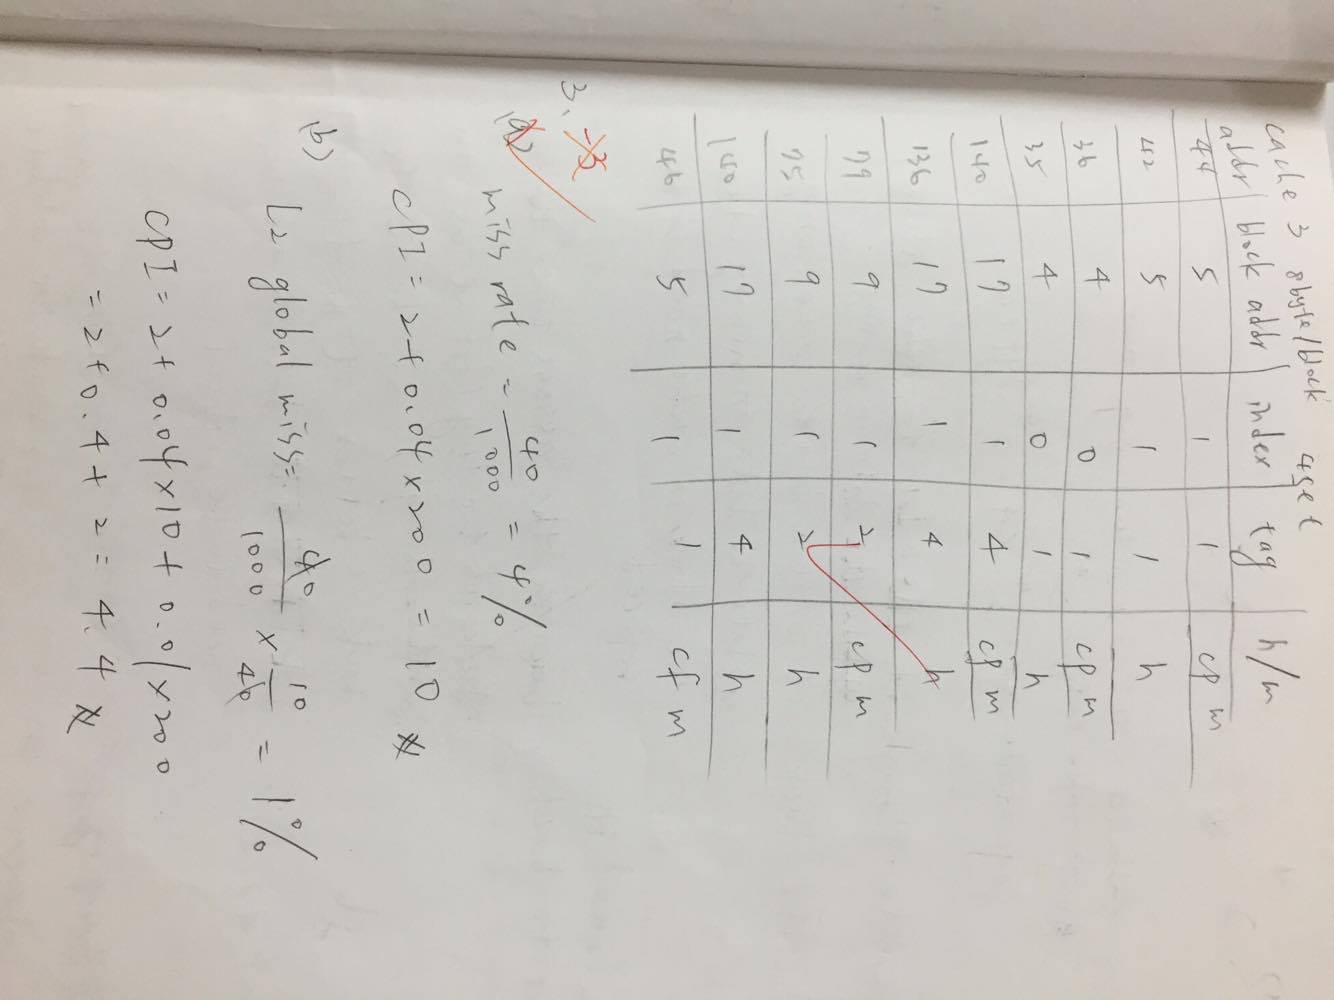 cache 3 8byte/block 4set
addr block addr index tag h/m
44 5 1 1 cp m
42 5 1 1 h
36 4 0 1 cp m
35 4 0 1 h
140 17 1 4 cp m
136 17 1 4 h
79 9 1 2 cp m
75 9 1 2 h
140 17 1 4 h
46 5 1 1 cf m
3.
(a)
miss rate = 40/1000 = 4%
CPI = 2 + 0.04 × 200 = 10
(b)
L2 global miss = 40/1000 × 10/40 = 1%
CPI = 2 + 0.04 × 10 + 0.01 × 200
= 2 + 0.4 + 2 = 4.4